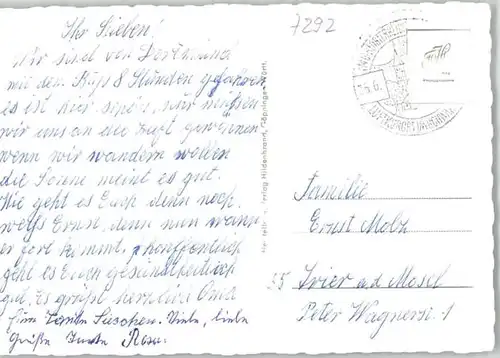 7292
Ihr Lieben!
Wir sind von Dortmund
mit den Bus 8 Stunden gefahren
es ist hier schön, nur müßen
wir uns an die Luft gewönnen
wenn wir wandern wollen
die Sonne meint es gut.
Wie geht es Euch denn noch,
weiß Ernst, denn nun wann
er fort kommt, hoffentlich
geht es Euch gesundheitlich
gut. Es grüßt herzlich Oma
Tante Lieschen. Viele, liebe
Grüße Tante Rosa.
Verlag Hildenbrand, Göppingen-Württ.
Familie
Ernst Molz
55 Trier a.d Mosel
Peter Wagnerst. 1